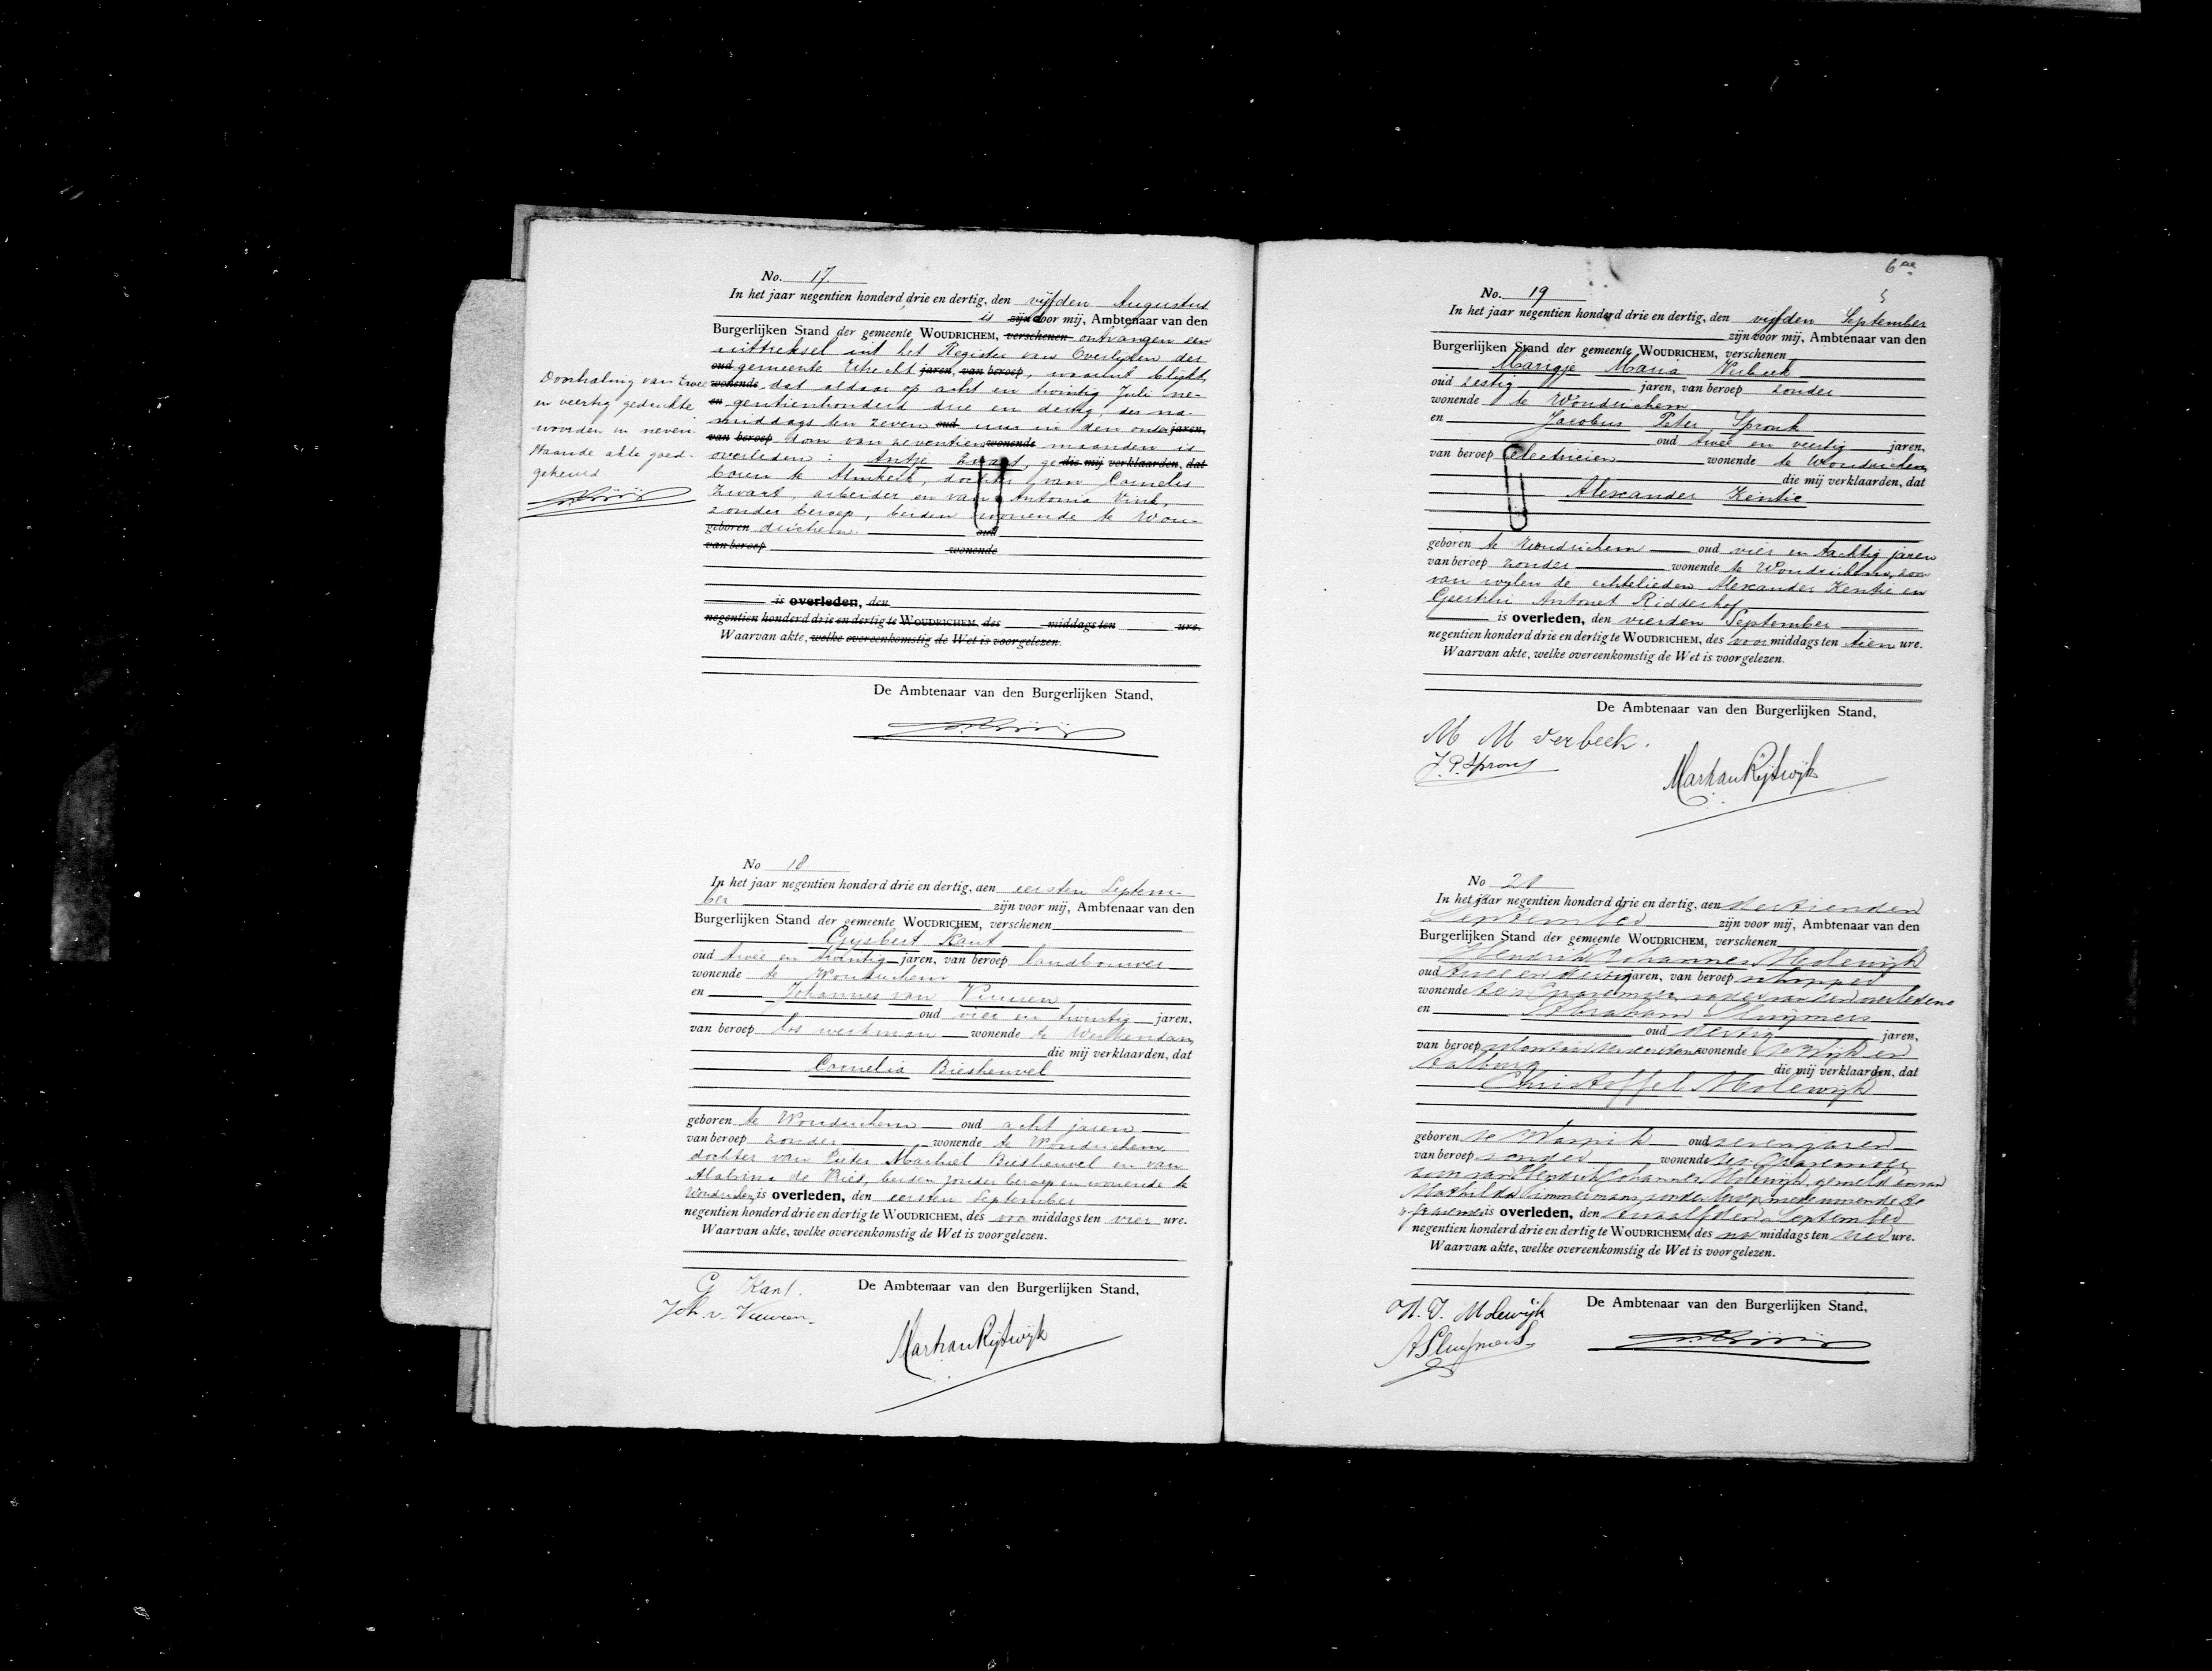 No. 17.
In het jaar negentien honderd drie en dertig, den vijfden Augustus
is zijn voor mij, Ambtenaar van den
Burgerlijken Stand der gemeente WOUDRICHEM, verschenen ontvangen een
uittreksel uit het Register van Overlijden der
oud gemeente Utrecht jaren, van beroep, waaruit blijkt,
wonende dat aldaar op acht en twintig Juli ne-
en gentienhonderd drie en dertig, des na-
middags ten zeven oud ure in den ouder jaren,
van beroep dom van zeventien wonende maanden is
overleden: Antje Zwart, ge die mij verklaarden, dat
boren te Almkerk, dochter van Cornelis
Zwart, arbeider en van Antonia Vink,
zonder beroep, beiden wonende te Wou-
geboren drichem. oud
van beroep wonende
is overleden, den
negentien honderd drie en dertig te WOUDRICHEM, des middags ten ure.
Waarvan akte, welke overeenkomstig de Wet is voorgelezen.
De Ambtenaar van den Burgerlijken Stand,
Doorhaling van twee
en veertig gedrukte
woorden in neven-
staande akte goed-
gekeurd
No 18.
In het jaar negentien honderd drie en dertig, den eersten Septem-
ber zijn voor mij, Ambtenaar van den
Burgerlijken Stand der gemeente WOUDRICHEM, verschenen
Gijsbert Kant
oud twee en twintig jaren, van beroep landbouwer
wonende te Woudrichem
en Johannes van Vuuren
oud vier en twintig jaren,
van beroep los werkman wonende te Werkendam,
die mij verklaarden, dat
Cornelia Biesheuvel
geboren te Woudrichem oud acht jaren
van beroep zonder wonende te Woudrichem,
dochter van Pieter Machiel Biesheuvel en van
de Vries, beiden zonder beroep en wonende te
Woudrichem, is overleden, den eersten September
negentien honderd drie en dertig te WOUDRICHEM, des middags ten vier ure.
Waarvan akte, welke overeenkomstig de Wet is voorgelezen.
De Ambtenaar van den Burgerlijken Stand,
G Kant.
Joh. v. Vuuren.
Martran Rijswijk
6de
5
No. 19
In het jaar negentien honderd drie en dertig, den vijfden September
zijn voor mij, Ambtenaar van den
Burgerlijken Stand der gemeente WOUDRICHEM, verschenen
Marigje Maria Verbeek
oud zestig jaren, van beroep zonder
wonende te Woudrichem
en Jacobus Peter Spronk
oud twee en veertig jaren,
van beroep electricien wonende te Woudrichem,
die mij verklaarden, dat
Alexander Kentie
geboren te Woudrichem oud vier en tachtig jaren
van beroep zonder wonende te Woudrichem, zoon
van wijlen de echtelieden Alexander Kentie en
Geertrui Antonet Ridderhof
is overleden, den vierden September
negentien honderd drie en dertig te WOUDRICHEM, des voor middags ten tien ure.
Waarvan akte, welke overeenkomstig de Wet is voorgelezen.
De Ambtenaar van den Burgerlijken Stand,
M M Verbeek.
J. P. Spronk
Martran Rijswijk
No 20
In het jaar negentien honderd drie en dertig, den dertienden
September zijn voor mij, Ambtenaar van den
Burgerlijken Stand der gemeente WOUDRICHEM, verschenen
Hendrik Johannes Molewijk
oud twee en dertig jaren, van beroep schipper
wonende te 's Gravenmoer, vader van den overledene
en Abraham Sluijmers
oud dertig jaren,
van beroep wonende te Wijk en
Aalburg die mij verklaarden, dat
Christoffel Molewijk
geboren te Waspik oud zeven jaren
van beroep zonder wonende te 's Gravenmoer,
zoon van Hendrik Johannes Molewijk, gemeld en van
Mathilda Timmermans, zonder beroep, mede wonende te
's Gravenmoer is overleden, den twaalfden September
negentien honderd drie en dertig te WOUDRICHEM, des na middags ten vier ure.
Waarvan akte, welke overeenkomstig de Wet is voorgelezen.
De Ambtenaar van den Burgerlijken Stand,
H. J. Molewijk
A Sluijmers